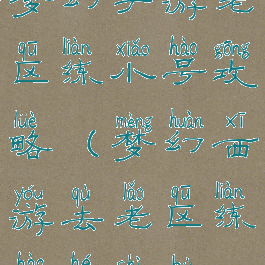 梦幻手游老
qū liàn xiǎo hào gōng
区练小号攻
lüè mèng huàn xī
略(梦幻西
yóu qù lǎo qū liàn
游去老区练